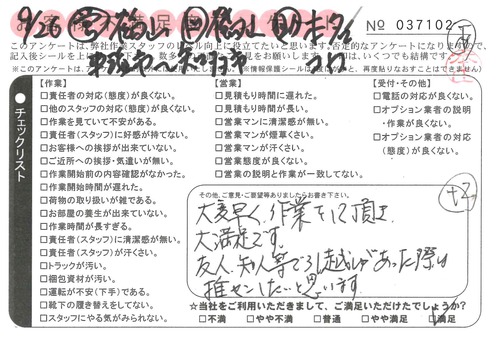 9/26
No 037102
このアンケートは、弊社作業スタッフのレベル向上に役立てたいと思います。否定的なアンケートになりますので、
記入後シールを上
お願いします
はい、いくつでも結構です。
※このアンケートは、
(※情報保護シールは剥がすと、再度貼りなおすことはできません)
チェックリスト
【作業】
□責任者の対応(態度)が良くない。
□他のスタッフの対応(態度)が良くない。
□作業を見ていて不安がある。
□責任者(スタッフ)に好感が持てない。
□お客様への挨拶が出来ていない。
□ご近所への挨拶・気遣いが無い。
□作業開始前の内容確認がなかった。
□作業開始時間が遅れた。
□荷物の取り扱いが雑である。
□お部屋の養生が出来ていない。
□作業時間が長すぎる。
□責任者(スタッフ)に清潔感が無い。
□責任者(スタッフ)が汗くさい。
□トラックが汚い。
□梱包資材が汚い。
□運転が不安(下手)である。
□靴下の履き替えをしてない。
□スタッフにやる気がみられない。
【営業】
□見積もり時間に遅れた。
□見積もり時間が長い。
□営業マンに清潔感が無い。
□営業マンが煙草くさい。
□営業マンが汗くさい。
□営業態度が良くない。
□営業の説明と作業が一致してない。
【受付・その他】
□電話の対応が良くない。
□オプション業者の説明
・作業が良くない。
□オプション業者の対応
(態度)が良くない。
その他、ご意見・ご要望等ありましたらお書き下さい。
大変早く、作業をして頂き
大満足です。
友人、知人等で引越しがあった際は
推センしたいと思います
☆当社をご利用いただきまして、ご満足いただけたでしょうか?
□不満 □やや不満 □普通 □やや満足 □満足